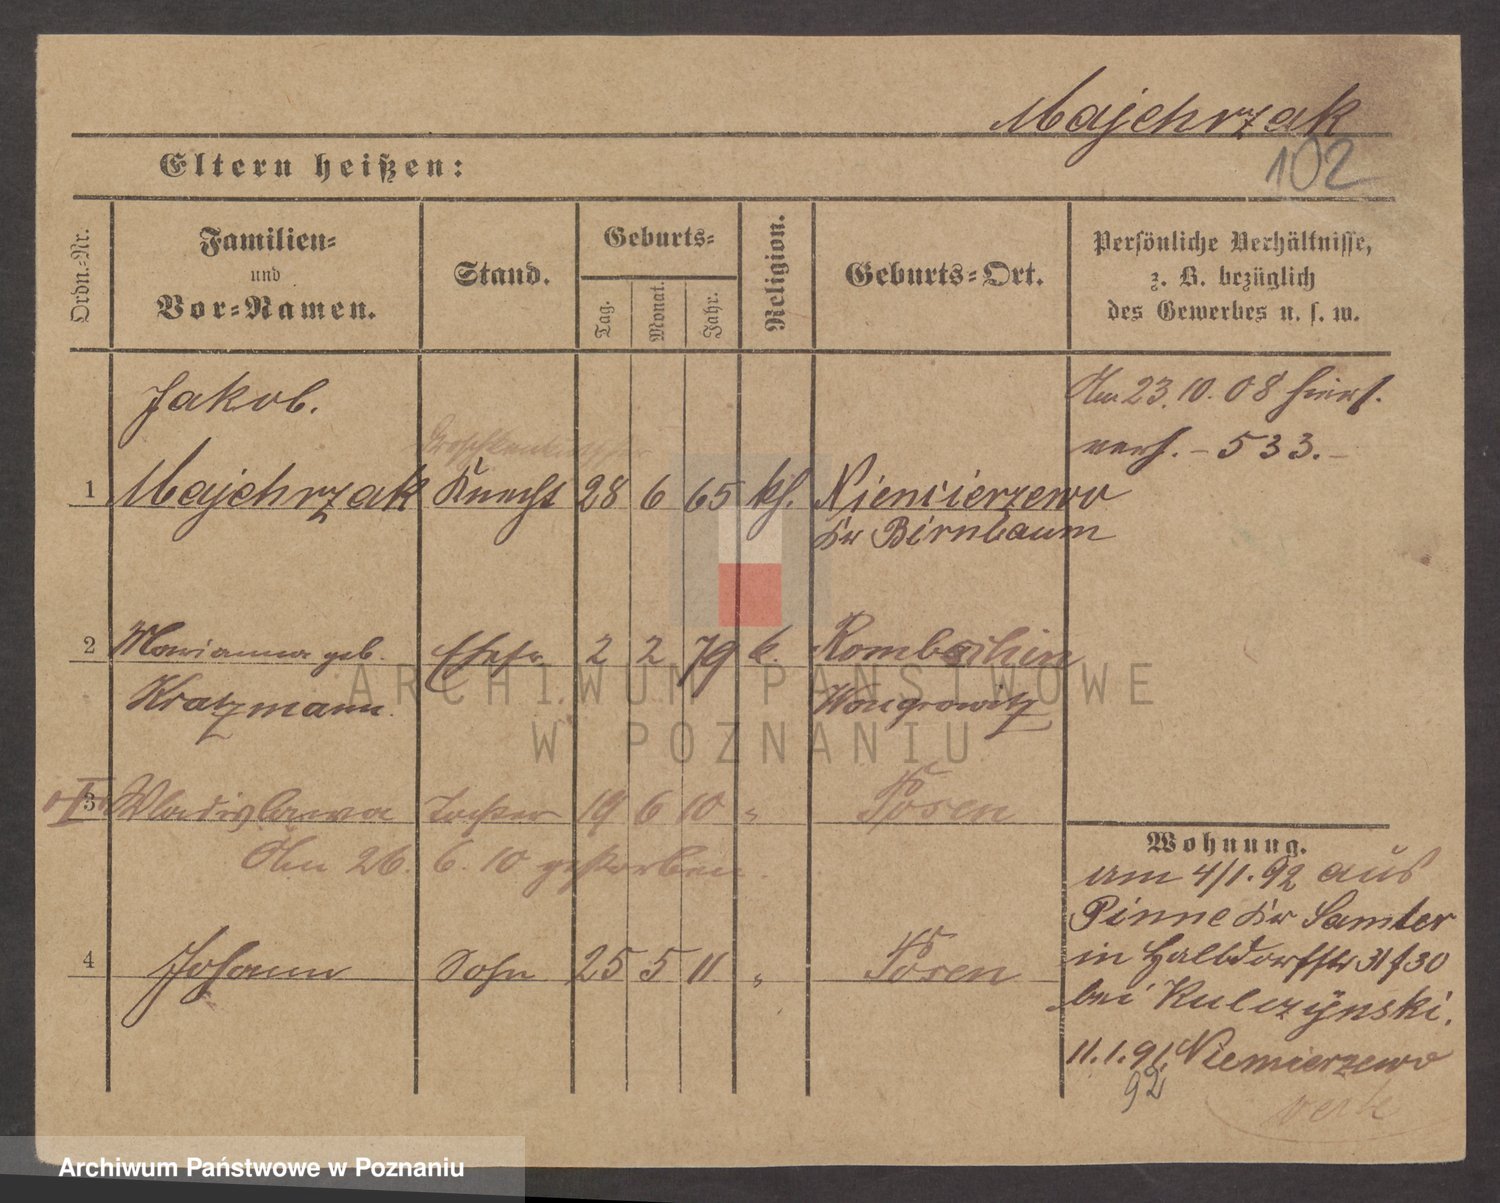 Majchrzak
102
Eltern heißen:
Ordn.-Nr.
Familien-
und
Vor-Namen.
Stand.
Geburts-
Tag.
Monat.
Jahr.
Religion.
Geburts-Ort.
Persönliche Verhältnisse,
z. B. bezüglich
des Gewerbes u. s. w.
Jakob.
Am 23.10.08 hiers.
verh. - 533. -
1 Majchrzak Knecht 28 6 65 kh. Niemierzewo
Kr Birnbaum
2 Marianna geb. Ehefr. 2 2 79 k.
Kratzmann. Wongrowitz
3 Wladislawa Tochter 19 6 10 " Posen
Am 26. 6. 10 gestorben.
4 Johann Sohn 25 5 11 " Posen
Wohnung.
am 4/1.92 aus
Pinne Kr Samter
in Halbdorfstr 31
bei Kulczynski.
11.1.91. Niemierzewo
92
ARCHIWUM PAŃSTWOWE
W POZNANIU
Archiwum Państwowe w Poznaniu